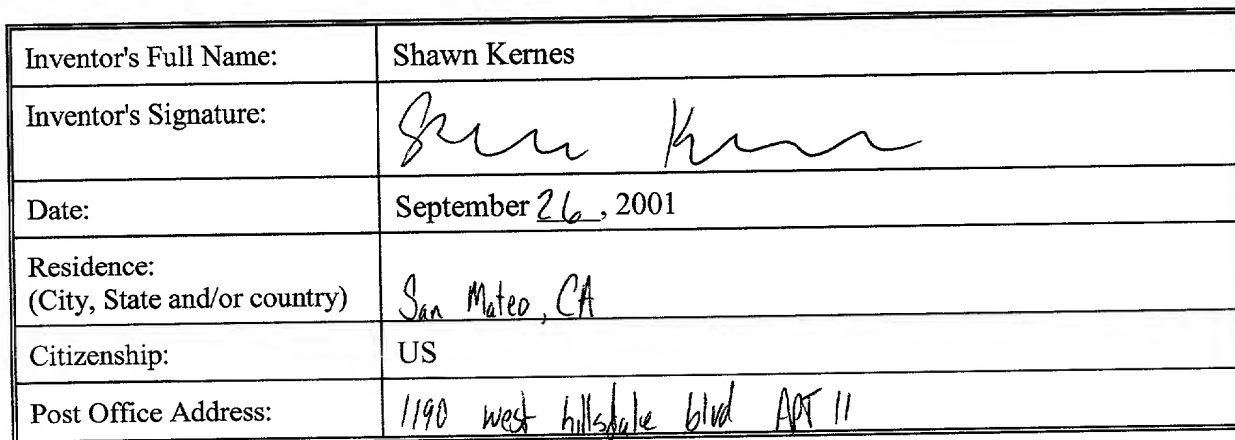 Inventor's Full Name: Shawn Kernes
Inventor's Signature:
Date: September 26, 2001
Residence:
(City, State and/or country) San Mateo, CA
Citizenship: US
Post Office Address: 1190 west hillsdale blvd APT 11